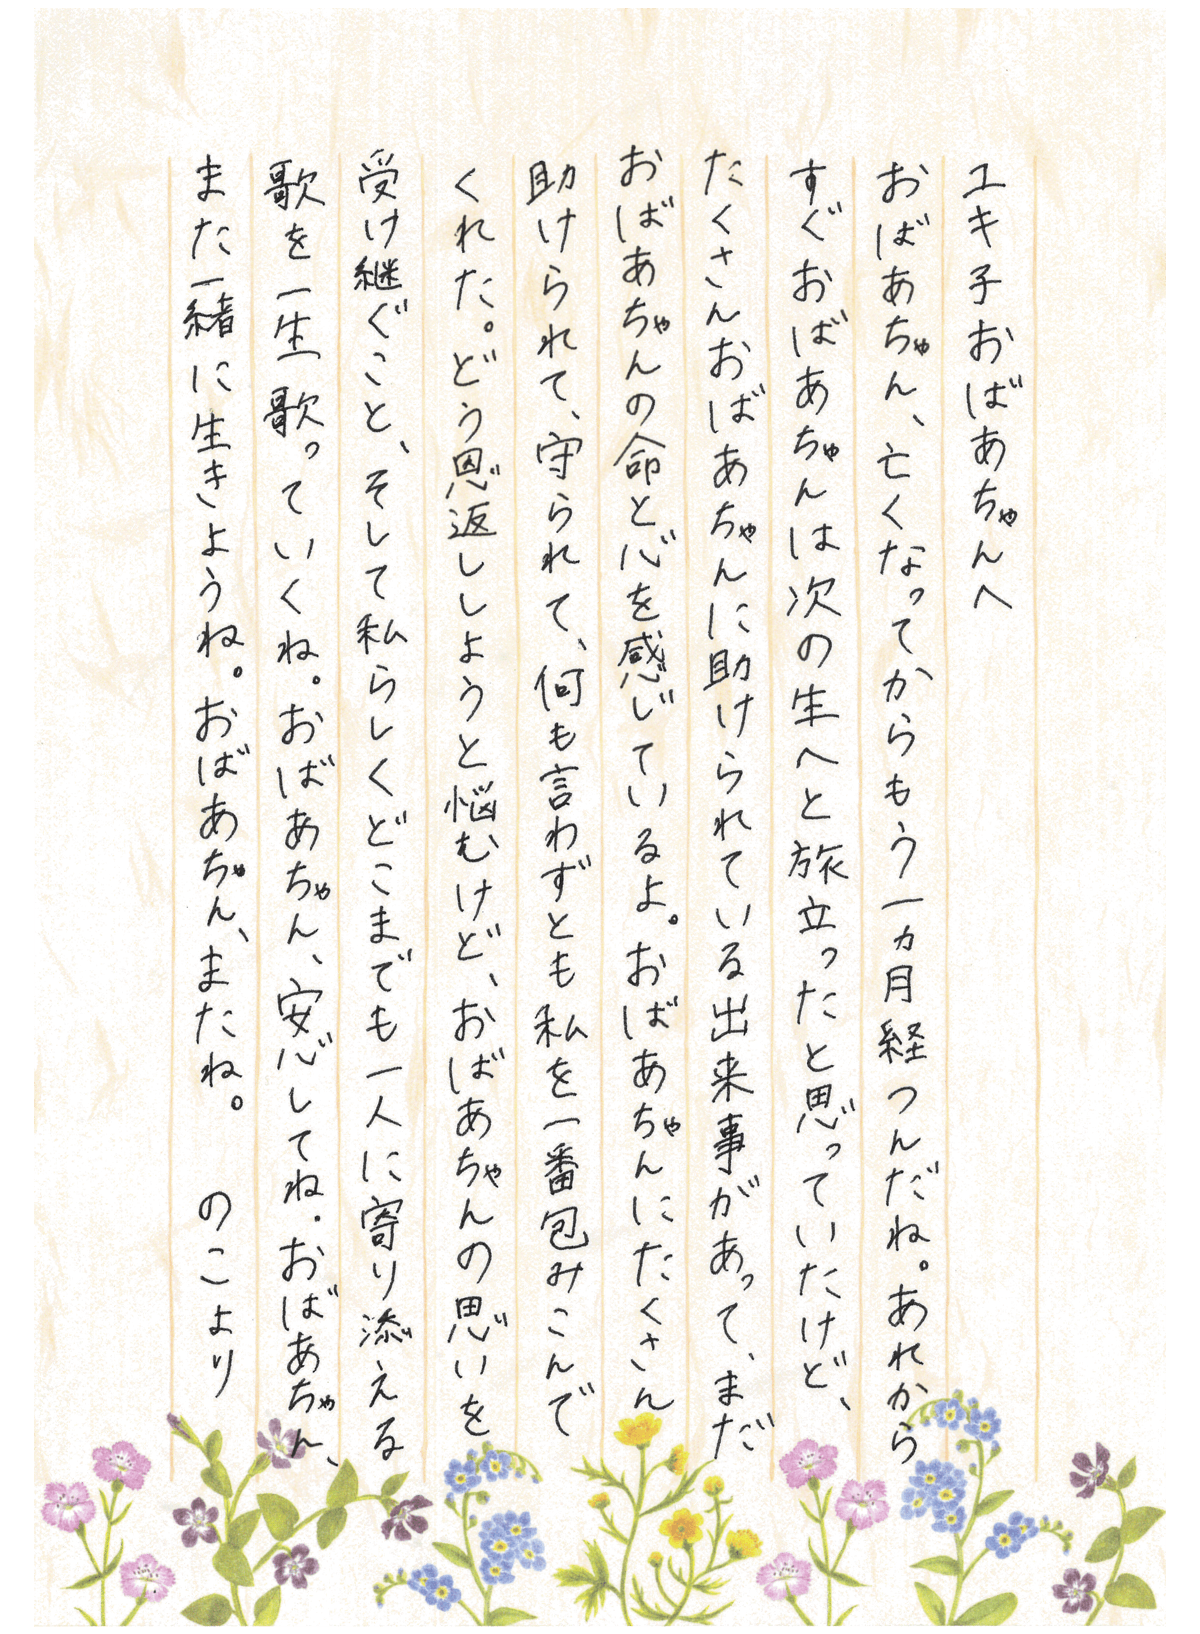 ユキ子おばあちゃんへ
おばあちゃん、亡くなってからもう一ヵ月経つんだね。あれから
すぐおばあちゃんは次の生へと旅立ったと思っていたけど、
たくさんおばあちゃんに助けられている出来事があって、まだ
おばあちゃんの命と心を感じているよ。おばあちゃんにたくさん
助けられて、守られて、何も言わずとも私を一番包みこんで
くれた。どう恩返ししようと悩むけど、おばあちゃんの思いを
受け継ぐこと、そして私らしくどこまでも一人に寄り添える
歌を一生歌っていくね。おばあちゃん、安心してね。おばあちゃん、
また一緒に生きようね。おばあちゃん、またね。　のこより